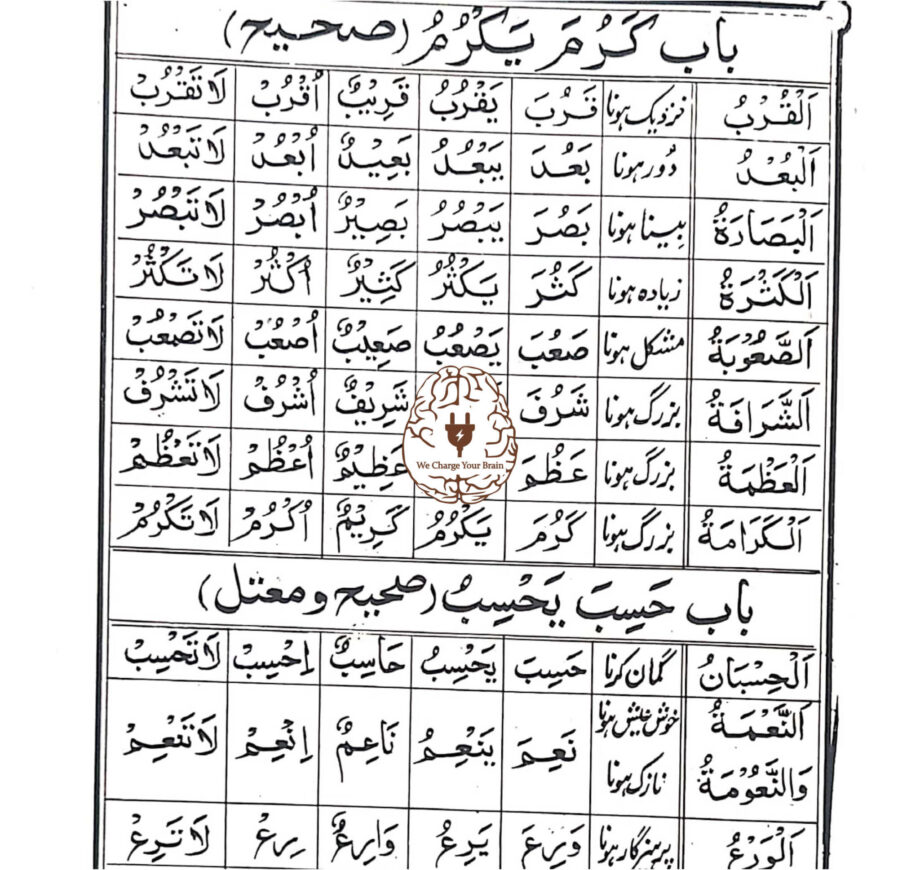 باب كَرُمَ يَكْرُمُ (صحیح)
اَلْقُرْبُ نزدیک ہونا قَرُبَ يَقْرُبُ قَرِيْبٌ اُقْرُبْ لَاتَقْرُبْ
اَلْبُعْدُ دُور ہونا بَعُدَ يَبْعُدُ بَعِيْدٌ اُبْعُدْ لَاتَبْعُدْ
اَلْبَصَارَةُ بینا ہونا بَصُرَ يَبْصُرُ بَصِيْرٌ اُبْصُرْ لَاتَبْصُرْ
اَلْكَثْرَةُ زیادہ ہونا كَثُرَ يَكْثُرُ كَثِيْرٌ اُكْثُرْ لَاتَكْثُرْ
اَلصَّعُوْبَةُ مشکل ہونا صَعُبَ يَصْعُبُ صَعِيْبٌ اُصْعُبْ لَاتَصْعُبْ
اَلشَّرَافَةُ بزرگ ہونا شَرُفَ شَرِيْفٌ اُشْرُفْ لَاتَشْرُفْ
اَلْعَظْمَةُ بزرگ ہونا عَظُمَ عَظِيْمٌ اُعْظُمْ لَاتَعْظُمْ
We Charge Your Brain
اَلْكَرَامَةُ بزرگ ہونا كَرُمَ يَكْرُمُ كَرِيْمٌ اُكْرُمْ لَاتَكْرُمْ
باب حَسِبَ يَحْسِبُ (صحیح و معتل)
اَلْحِسْبَانُ گمان کرنا حَسِبَ يَحْسِبُ حَاسِبٌ اِحْسِبْ لَاتَحْسِبْ
اَلنَّعْمَةُ خوش عیش ہونا
وَالنَّعُوْمَةُ نازک ہونا نَعِمَ يَنْعِمُ نَاعِمٌ اِنْعِمْ لَاتَنْعِمْ
اَلْوَرْعُ پرہیزگار ہونا وَرِعَ يَرِعُ وَارِعٌ رِعْ لَاتَرِعْ